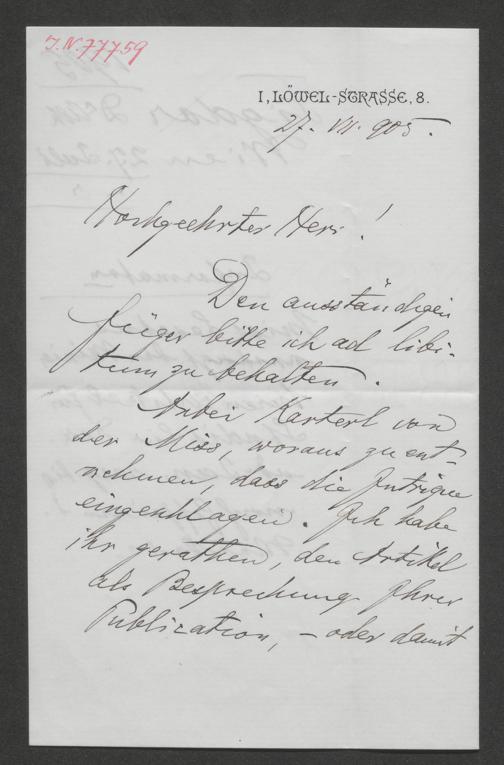 I.N. 77759
I, LÖWEL-STRASSE, 8.
27. VII. 905.
Hochgeehrter Herr!
Den ausständigen
Füger bitte ich ad libi-
tum zu behalten.
Anbei Karterl von
der Miss, woraus zu ent-
nehmen, dass die Intrigue
eingeschlagen. Ich habe
ihr gerathen, den Artikel
als Besprechung Ihrer
Publication, – oder damit